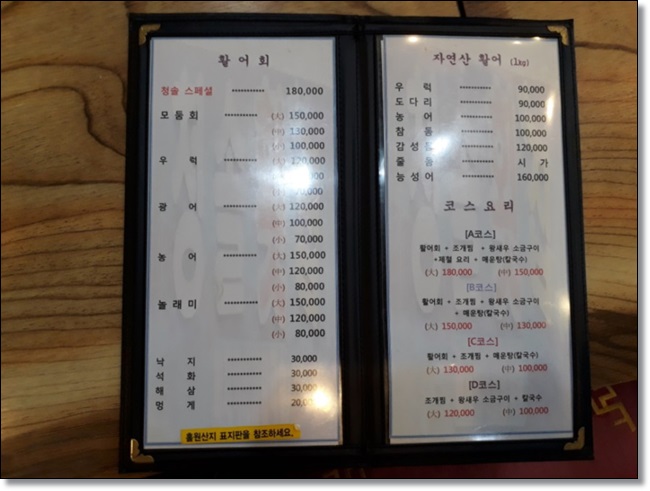 활 어 회
청솔 스페셜 ----------- 180,000
모 둠 회 ----------- (大) 150,000
(中) 130,000
(小) 100,000
우 럭 ----------- (大) 120,000
광 어 ----------- (大) 120,000
(中) 100,000
(小) 70,000
농 어 ----------- (大) 150,000
(中) 120,000
(小) 80,000
놀 래 미 ----------- (大) 150,000
(中) 120,000
(小) 80,000
낙 지 ----------- 30,000
석 화 ----------- 30,000
해 삼 ----------- 30,000
멍 게 ----------- 20,000
홀원산지 표지판을 참조하세요.
자연산 활어 (1kg)
우 럭 ----------- 90,000
도 다 리 ----------- 90,000
농 어 ----------- 100,000
참 돔 ----------- 100,000
감 성 돔 ----------- 120,000
줄 돔 ----------- 시 가
능 성 어 ----------- 160,000
코 스 요 리
[A코스]
활어회 + 조개찜 + 왕새우 소금구이
+제철 요리 + 매운탕(칼국수)
(大) 180,000 (中) 150,000
[B코스]
활어회 + 조개찜 + 왕새우 소금구이
+ 매운탕(칼국수)
(大) 150,000 (中) 130,000
[C코스]
활어회 + 조개찜 + 매운탕(칼국수)
(大) 130,000 (中) 100,000
[D코스]
조개찜 + 왕새우 소금구이 + 칼국수
(大) 120,000 (中) 100,000